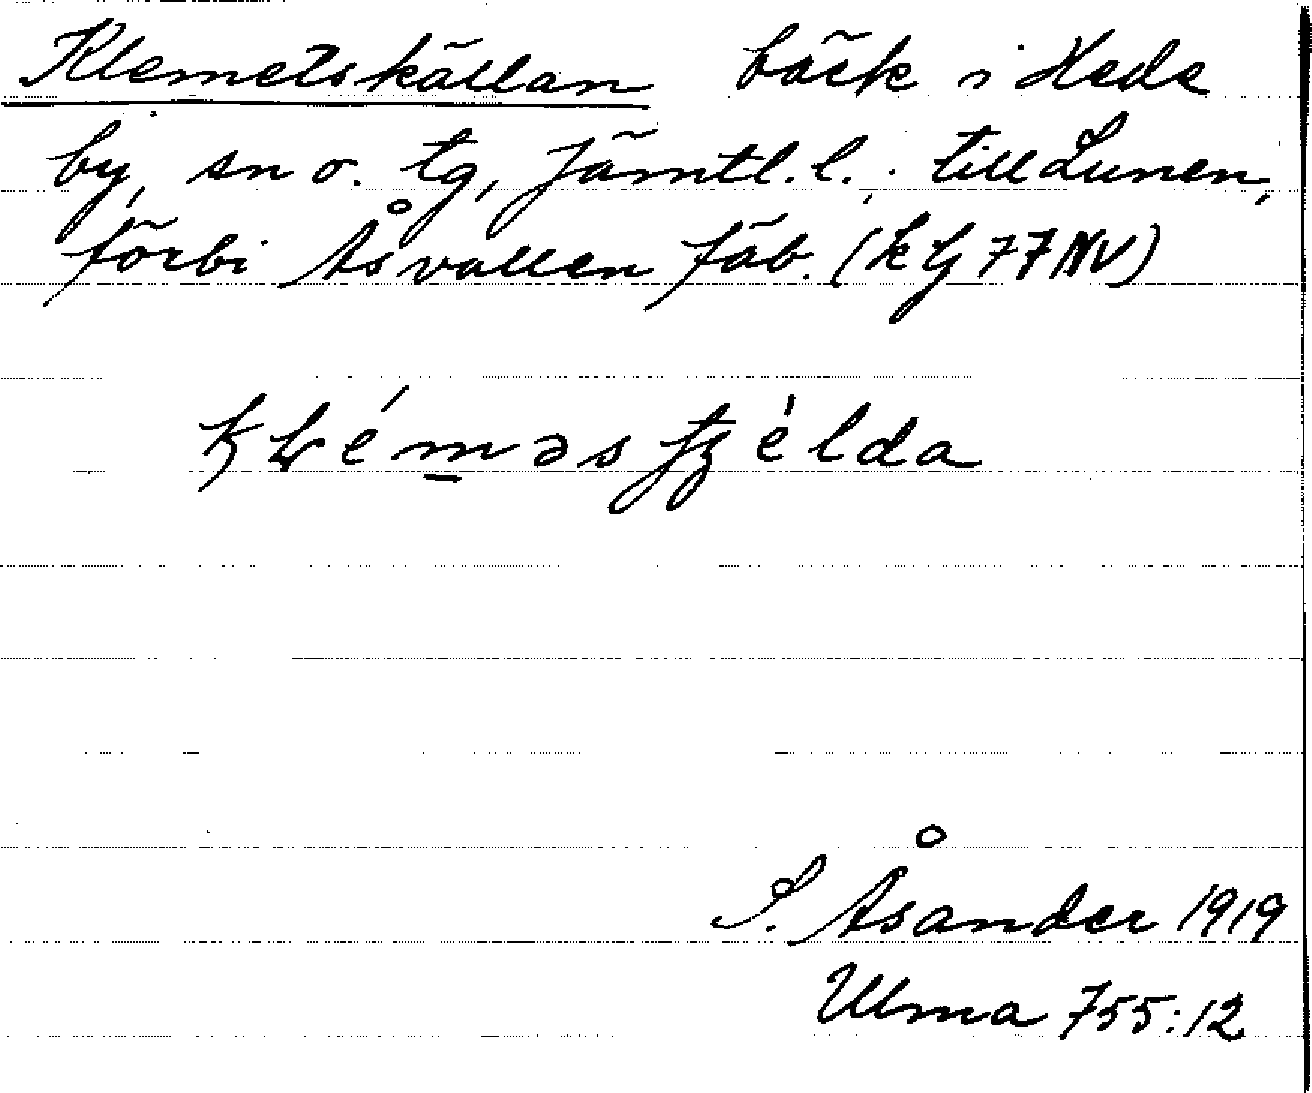 Klemetskällan bäck i Hede
by, sn o. tg, Jämtl. l. till Lunen,
förbi Åsvallen fäb. (kbl 77 NV)
S. Åsander 1919
Ulma 755:12